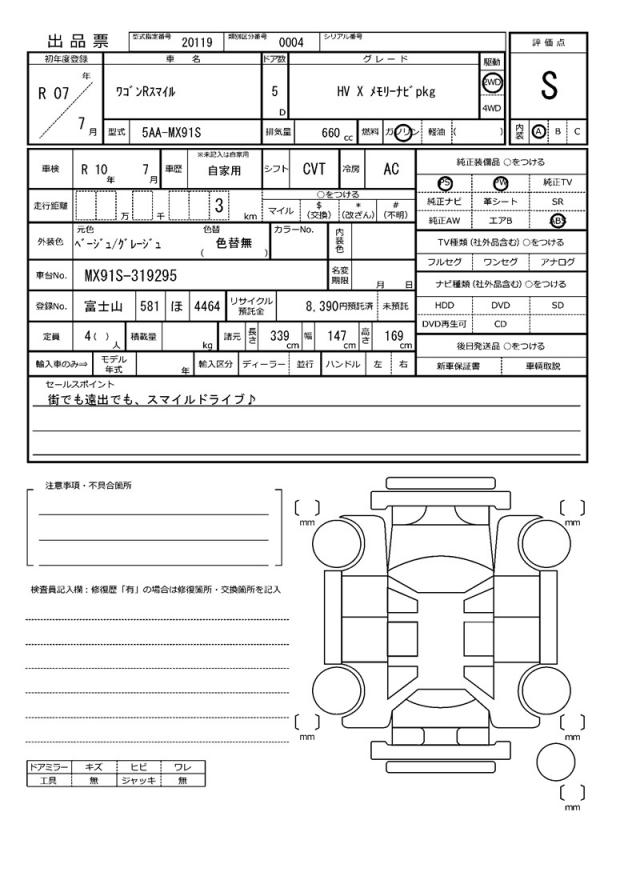 出品票 型式指定番号 20119 類別区分番号 0004 シリアル番号
評価点
S
初年度登録 車名 ドア数 グレード 駆動
R 07 年 7 月 ワゴンRスマイル 5 D HV X メモリーナビpkg 2WD
4WD
型式 5AA-MX91S 排気量 660 cc 燃料 ガソリン 軽油 ( ) 内装 A B C
車検 R 10 年 7 月 車歴 ※未記入は自家用 自家用 シフト CVT 冷房 AC
走行距離 万 千 3 km ○をつける
マイル $ (交換) * (改ざん) # (不明)
外装色 元色 ベージュ/グレージュ 色替 ( 色替無 ) カラーNo. 内装色
車台No. MX91S-319295 名変期限 月 日
登録No. 富士山 581 ほ 4464 リサイクル預託金 8,390円預託済 未預託
定員 4( ) 人 積載量 kg 諸元 長さ 339 cm 幅 147 cm 高さ 169 cm
輸入車のみ⇒ モデル年式 年 輸入区分 ディーラー 並行 ハンドル 左 右
純正装備品 ○をつける
PS PW 純正TV
純正ナビ 革シート SR
純正AW エアB ABS
TV種類 (社外品含む) ○をつける
フルセグ ワンセグ アナログ
ナビ種類 (社外品含む) ○をつける
HDD DVD SD
DVD再生可 CD
後日発送品 ○をつける
新車保証書 車輌取説
セールスポイント
街でも遠出でも、スマイルドライブ♪
注意事項・不具合箇所
検査員記入欄：修復歴「有」の場合は修復箇所・交換箇所を記入
ドアミラー キズ ヒビ ワレ
工具 無 ジャッキ 無
mm
mm
mm
mm
mm